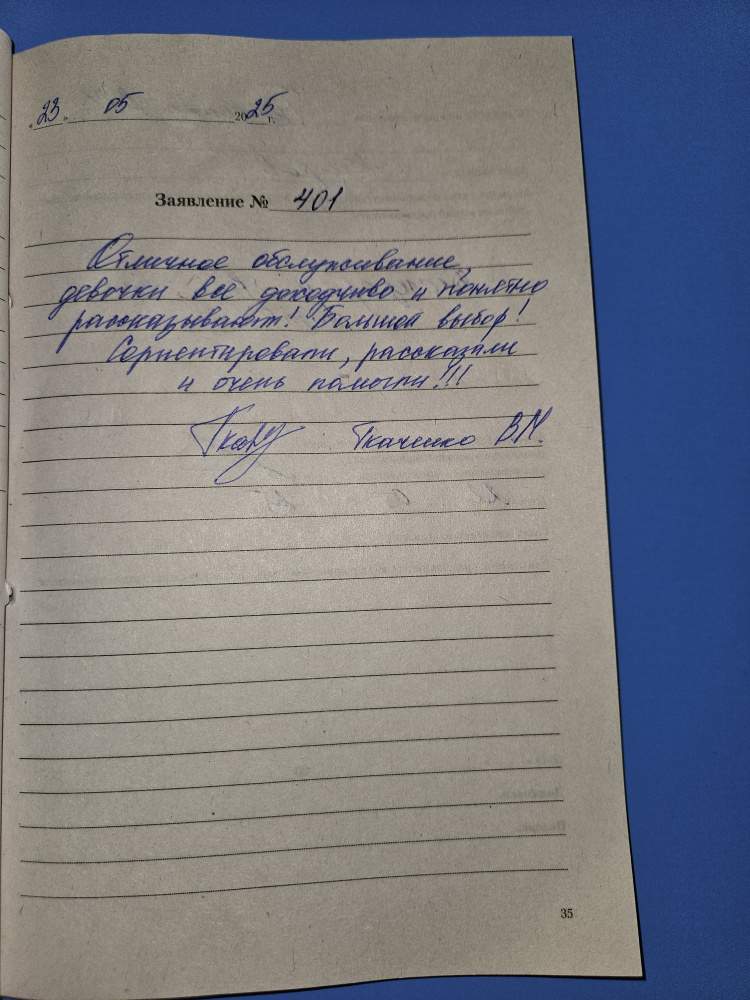 „23" 05 2025 г.
Заявление № 401
Отличное обслуживание,
девочки все доходчиво и понятно
рассказывают! Большой выбор!
Сориентировали, рассказали
и очень помогли!!!
Ткаченко В.М.
35